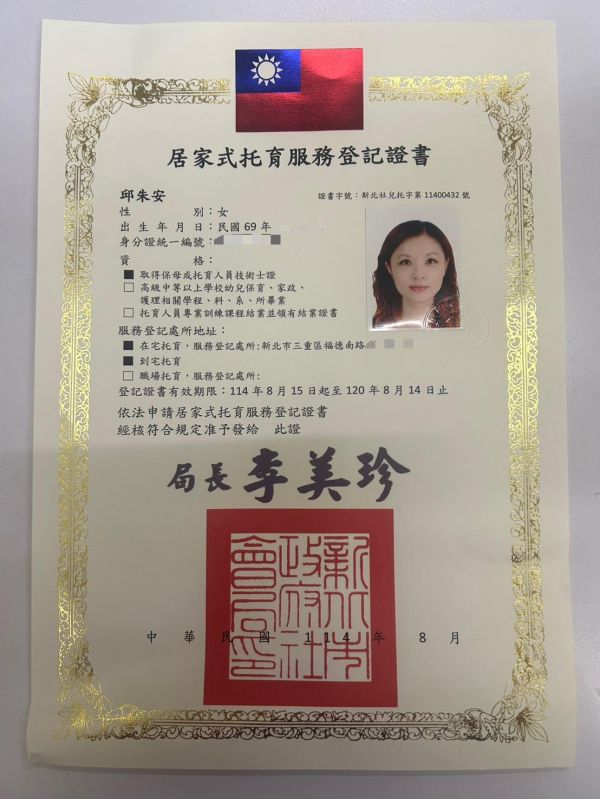 居家式托育服務登記證書
邱朱安
證書字號：新北社兒托字第 11400432 號
性 別：女
出生年月日：民國 69 年
身分證統一編號：
資 格：
■ 取得保母或托育人員技術士證
□ 高級中等以上學校幼兒保育、家政、
護理相關學程、科、系、所畢業
□ 托育人員專業訓練課程結業並領有結業證書
服務登記處所地址：
■ 在宅托育，服務登記處所:新北市三重區福德南路
■ 到宅托育
□ 職場托育，服務登記處所:
登記證書有效期限：114 年 8 月 15 日起至 120 年 8 月 14 日止
依法申請居家式托育服務登記證書
經核符合規定准予發給 此證
局長 李美珍
新北市政府社會局印
中華民國 114 年 8 月